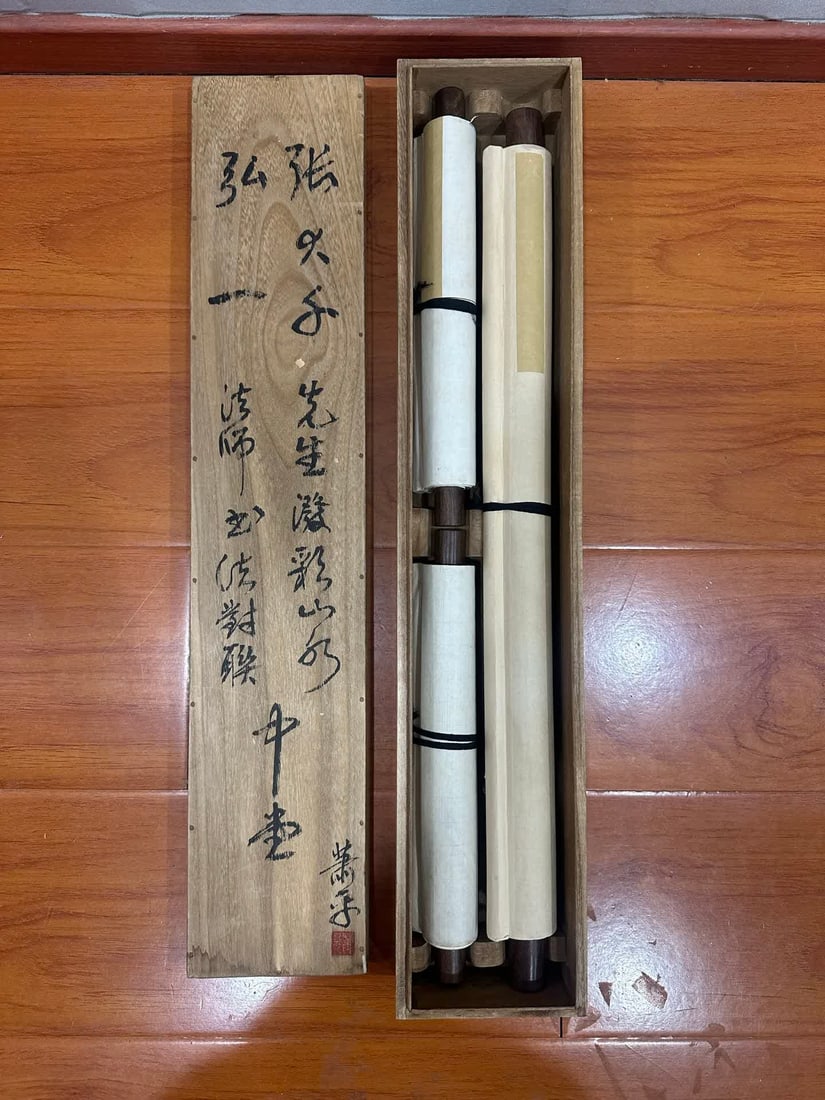 张大千先生潑彩山水
弘一法師书法對聯
中堂
蕭平